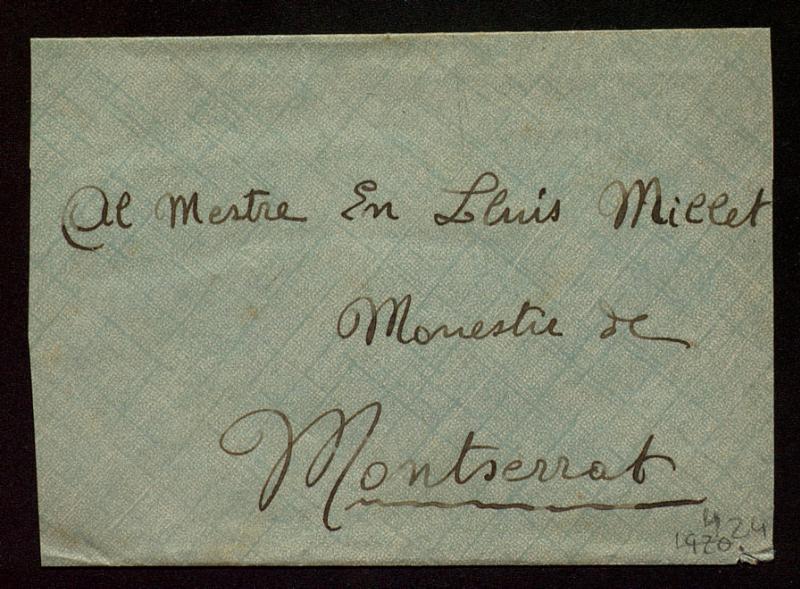 Al Mestre En Lluis Millet
Monestir de
Montserrat
4
1920
24